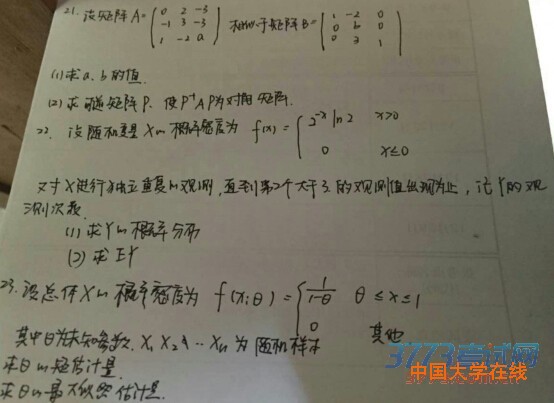 21. 设矩阵A=(0 2 -3 -1 3 -3 1 -2 a) 相似于矩阵B=(1 -2 0 0 b 0 0 3 1)
(1)求a,b的值.
(2)求可逆矩阵P, 使P⁻¹AP为对角矩阵.
22. 设随机变量X的概率密度为 f(x)={2^-x ln2 x>0
0 x≤0
对X进行独立重复的观测,直到第2个大于3的观测值出现为止,记Y为观
测次数.
(1)求Y的概率分布
(2)求EY
23.设总体X的概率密度为 f(x;θ)={1/(1-θ) θ≤x≤1
0 其他
其中θ为未知参数. X₁ X₂ … Xn 为随机样本
求θ的矩估计量.
求θ的最大似然估计量.
3773考试网
中国大学在线